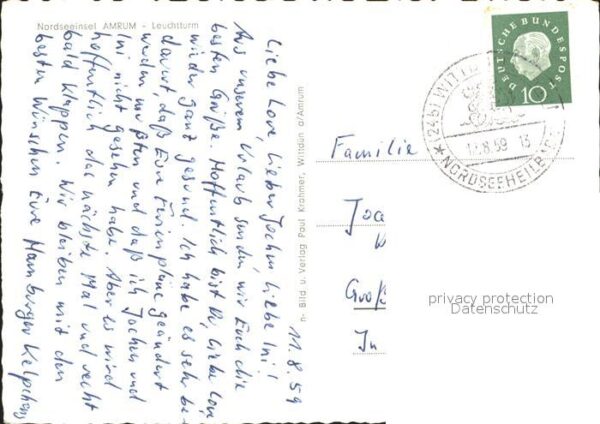 Nordseeinsel AMRUM - Leuchtturm
11.8.59
Liebe Lore, lieber Jochen, liebe Ini!
Aus unserem Urlaub senden wir Euch die
besten Grüße. Hoffentlich bist Du, liebe Lore
wieder ganz gesund. Ich habe es sehr be-
dauert daß Eure Ferienpläne geändert
werden mußten und daß ich Jochen und
Ini nicht gesehen habe. Aber es wird
hoffentlich das nächste Mal und recht
bald klappen. Wir bleiben mit den
besten Wünschen Eure Hamburger
n- Bild u. Verlag Paul Krahmer, Wittdün a/Amrum
DEUTSCHE BUNDESPOST
10
(24b) WITTD
8.59 13
NORDSEEHEILBA
Familie
Joc
Groß
In
privacy protection
Datenschutz